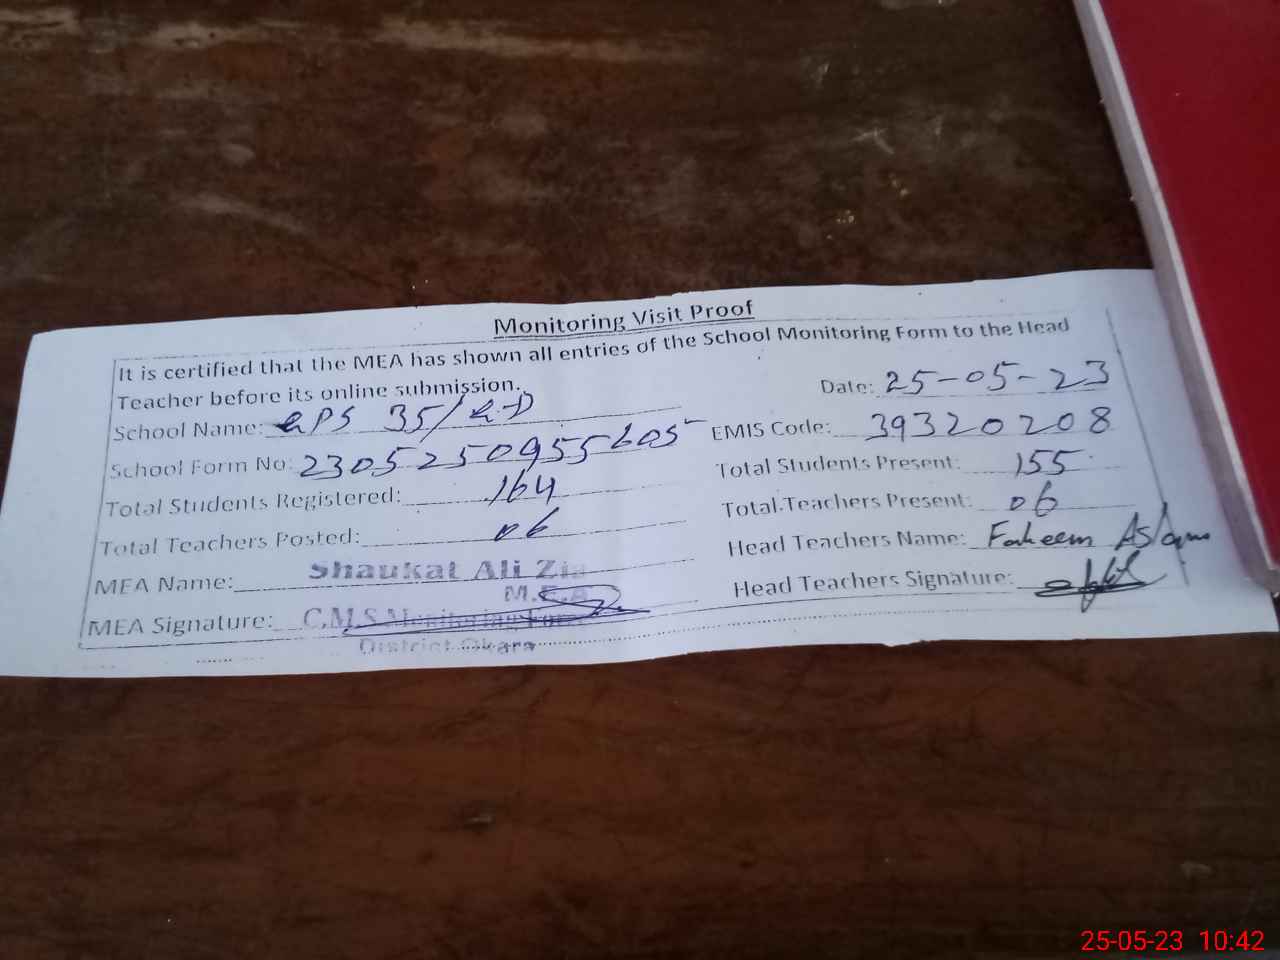 Monitoring Visit Proof
It is certified that the MEA has shown all entries of the School Monitoring Form to the Head
Teacher before its online submission.
Date: 25-05-23
School Name: GPS 35/G-D
EMIS Code: 39320208
School Form No: 2305250955605
Total Students Present: 155
Total Students Registered: 164
Total Teachers Present: 06
Total Teachers Posted: 06
Head Teachers Name: Faheem Aslam
MEA Name: Shaukat Ali Zia
Head Teachers Signature:
M.E.A
MEA Signature: C.M.S Monitoring Force
District Okara
25-05-23 10:42